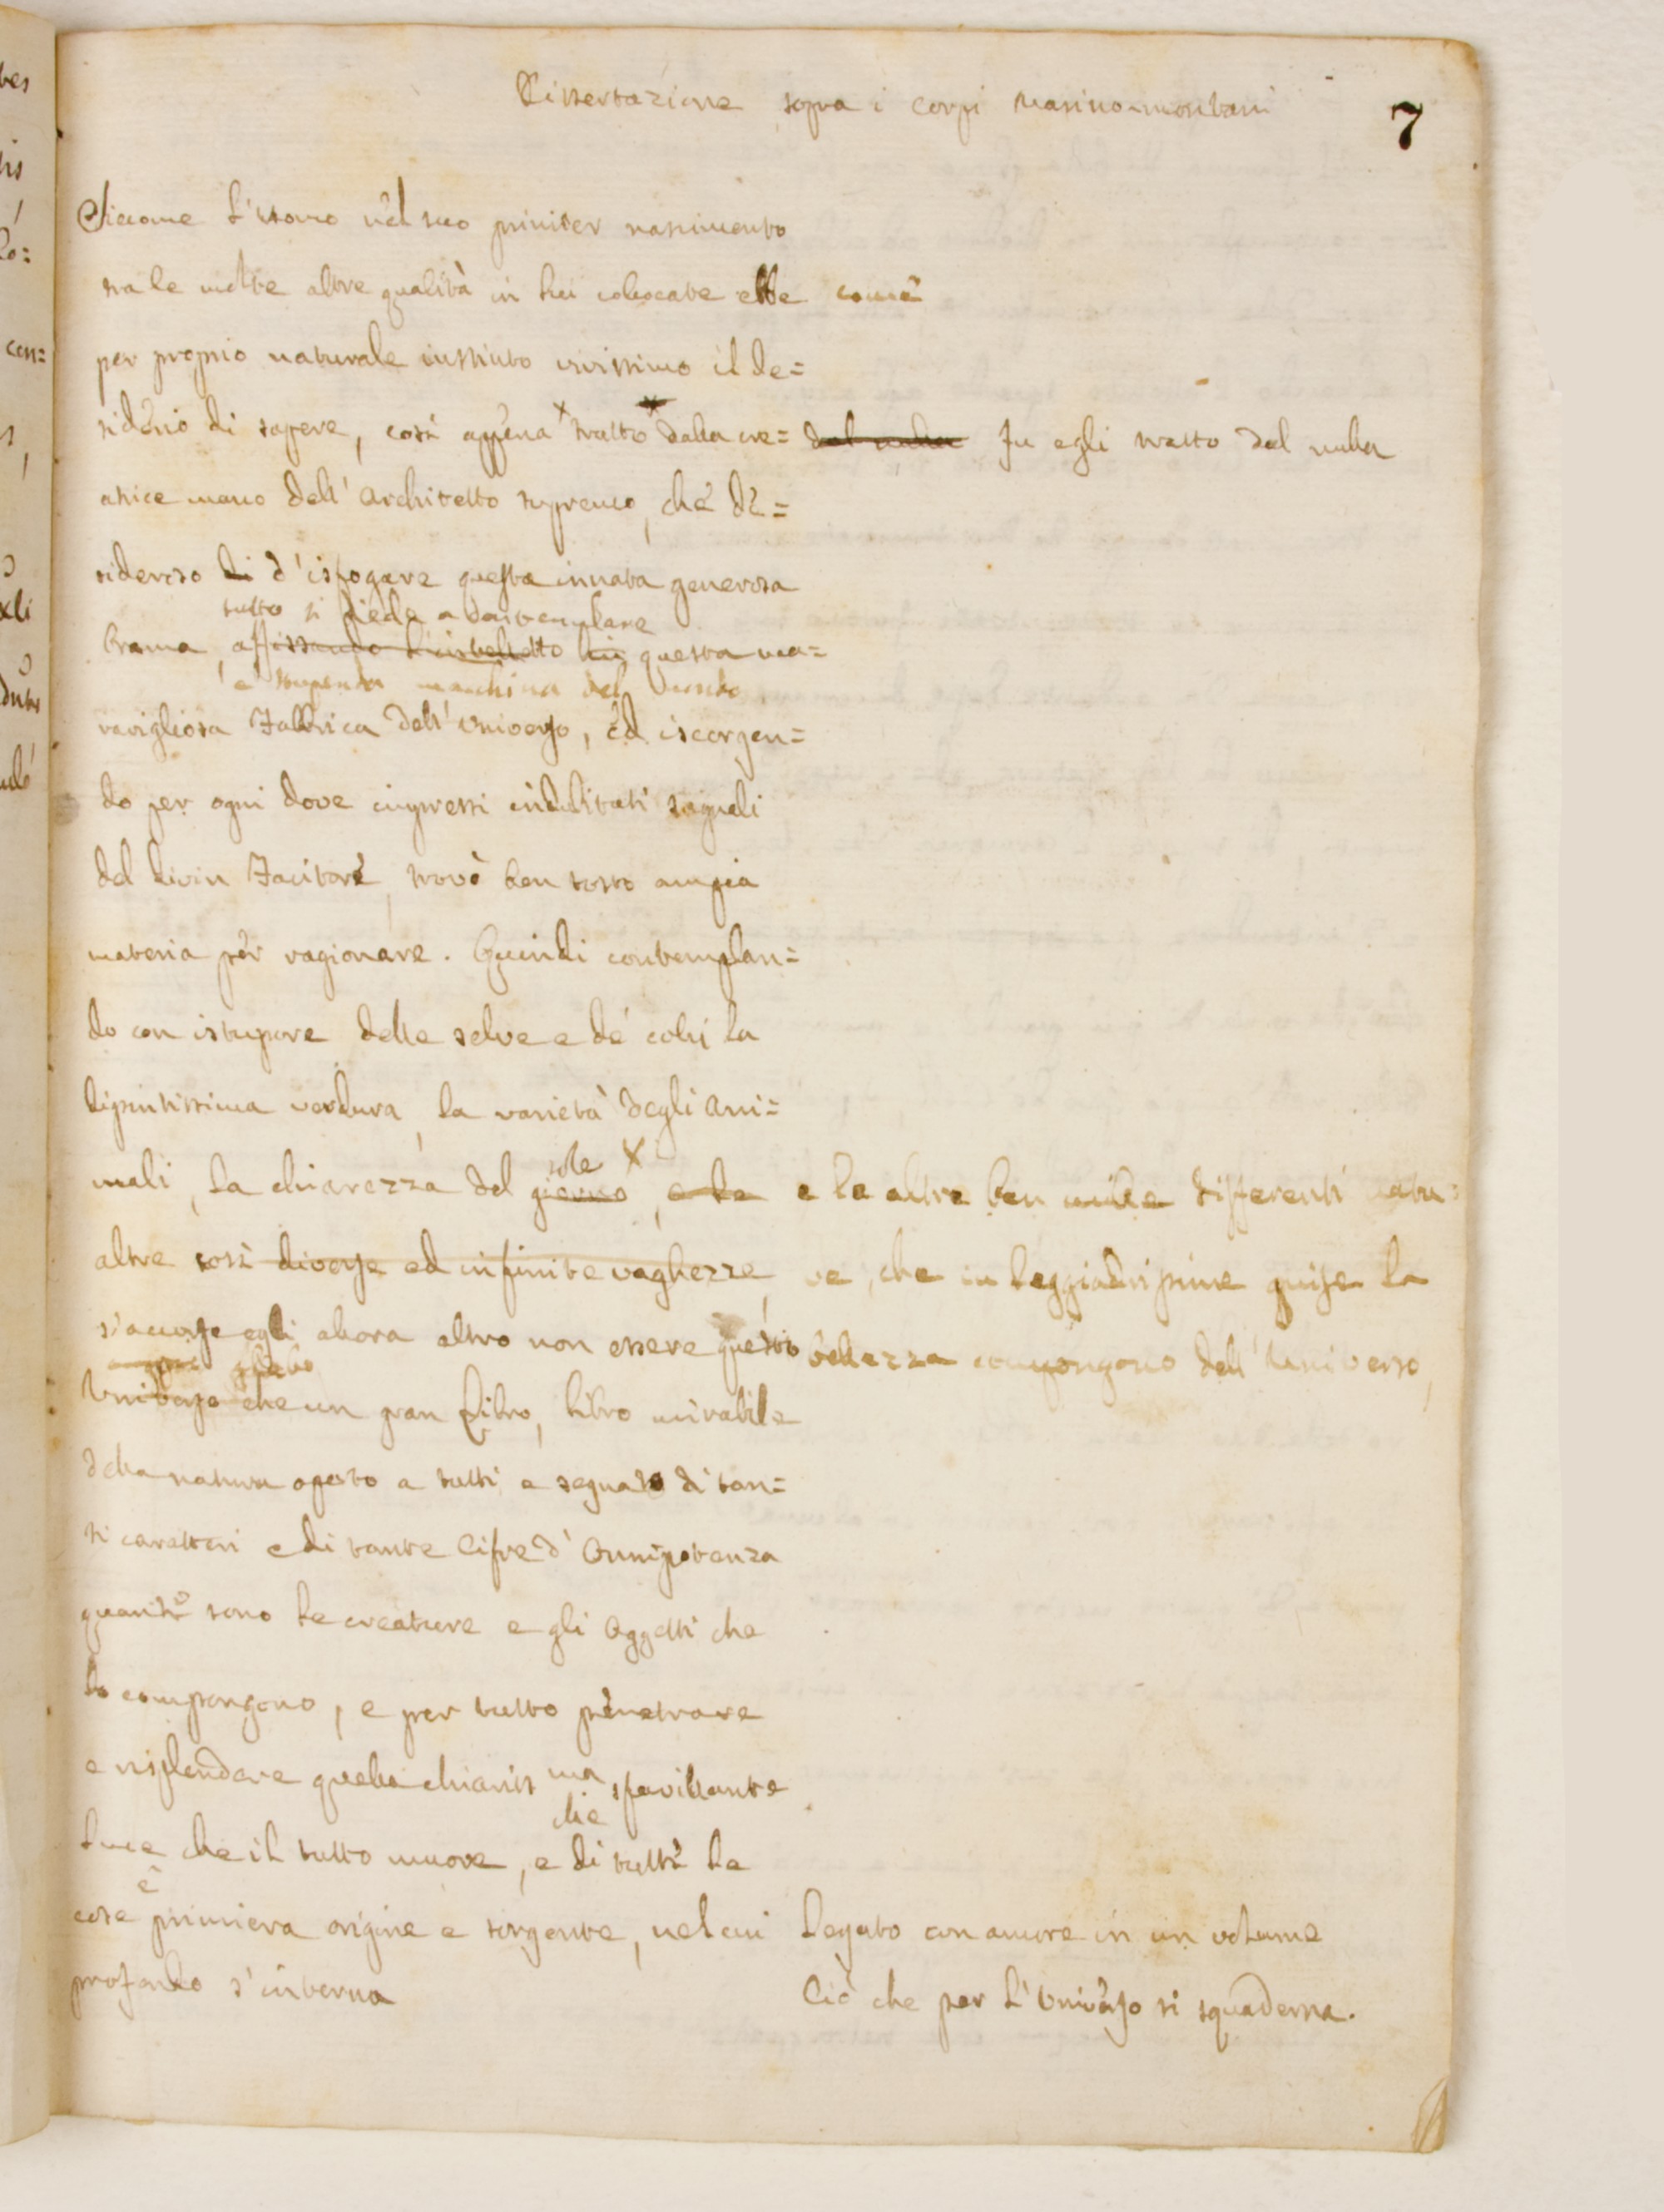 Dissertazione sopra i corpi marino-montani
7
Siccome l'uomo nel suo primier nascimento
tra le molte altre qualità in lui collocate ebbe come
per proprio naturale instinto vivissimo il de=
siderio di sapere, così appena tratto dalla cre=
dal nulla fu egli tratto dal nulla
atrice mano dell' Architetto supremo, che de=
sideroso di d'isfogare questa innata generosa
tutto si diede a contemplare
brama, affissando l'intelletto in questa ma=
e stupenda machina del Mondo
ravigliosa Fabbrica dell' Universo, ed iscorgen=
do per ogni dove impressi indubitati segnali
del divin Facitore, trovò ben tosto ampia
materia per ragionare. Quindi contemplan=
do con istupore delle selve e de' colli la
dipintissima verdura, la varietà degli Ani=
sole
mali, la chiarezza del giorno, e le
e le altre ben mille differenti natu=
altre così diverse ed infinite vaghezze,
re, che in leggiadrissime guise la
s'accorse egli allora altro non essere questo
bellezza compongono dell' Universo,
globo
Universo che un gran Libro, libro mirabile
della natura aperto a tutti, e segnato di tan=
ti caratteri e di tante Cifre d' Onnipotenza
quanti sono le creature e gli Oggetti che
lo compongono, e per tutto penetrare
e risplendere quella chiariss ma sfavillante
che
luce che il tutto muove, e di tutte le
è
cose primiera origine e sorgente, nel cui
profondo s'interna
Legato con amore in un volume
Ciò che per l'Universo si squaderna.